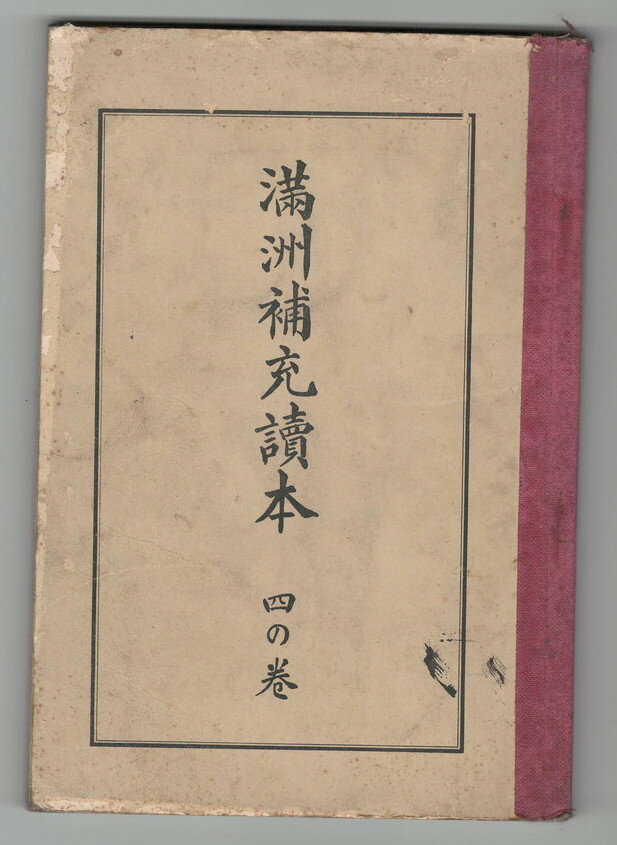 滿洲補充讀本
四の卷